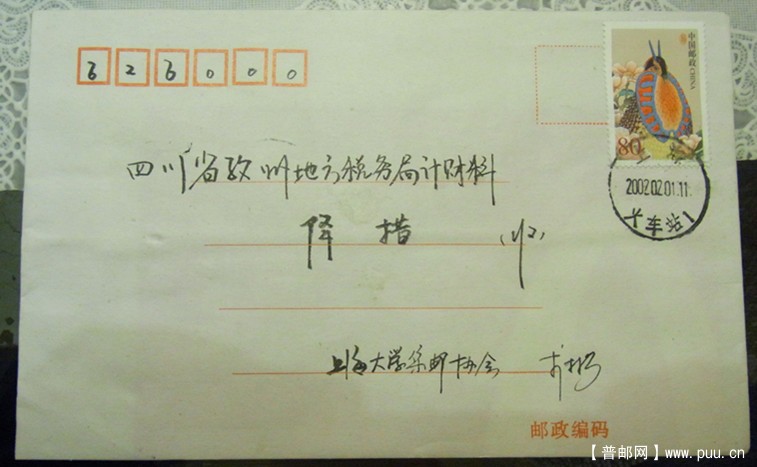 626000
中国邮政 CHINA
80
2002.02.01.11
车站
四川省孜州地方税务局计财科
降措 (收)
上海大学集邮协会
邮政编码
【普邮网】www.puu.cn